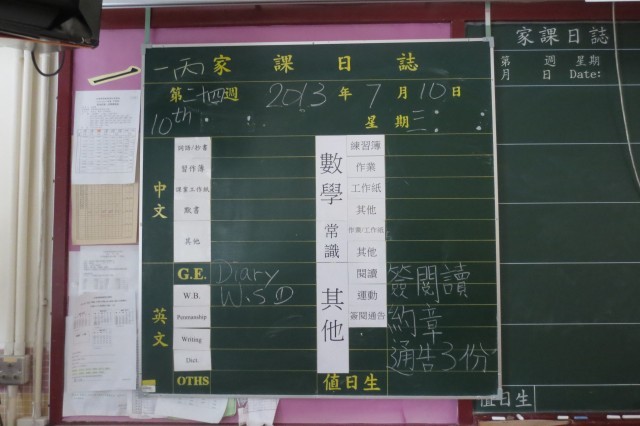 一丙 家課日誌
第二十四週 2013年7月10日
10th
星期三
中文
詞語/抄書
習作簿
課業工作紙
默書
其他
英文
G.E. Diary
W.B. W.S ①
Penmanship
Writing
Dict.
OTHS
數學
練習簿
作業
工作紙
其他
常識
作業/工作紙
其他
其他
閱讀
運動
簽閱通告
簽閱讀
約章
通告3份
值日生
家課日誌
第 週 星期
月 日 Date:
值日生